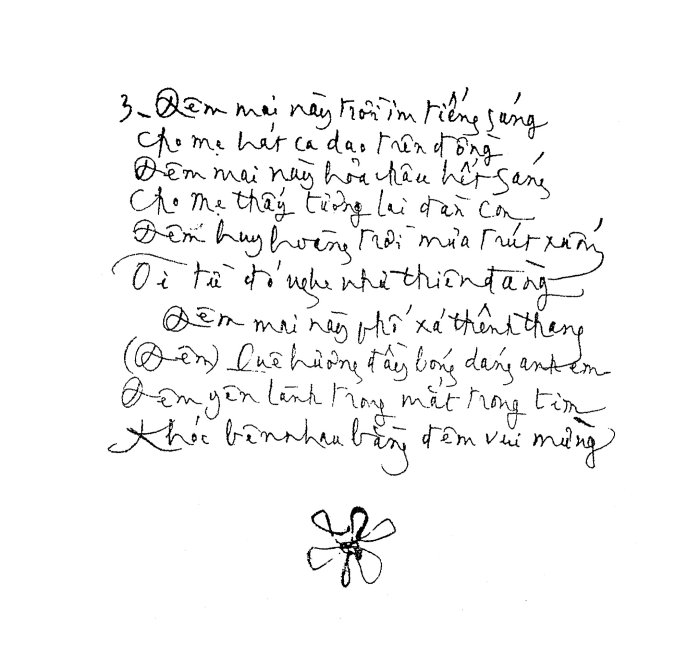 3- Đêm mai này trời im tiếng súng
Cho mẹ hát ca dao trên đồng
Đêm mai này hỏa châu hết sáng
Cho mẹ thấy tương lai đàn con
Đêm huy hoàng trời mưa trút xuống
Ôi từ đó nghe như thiên đàng
Đêm mai này phố xá thênh thang
(Đêm) Quê hương đầy bóng dáng anh em
Đêm yên lành trong mắt trong tim
Khóc bên nhau bằng đêm vui mừng